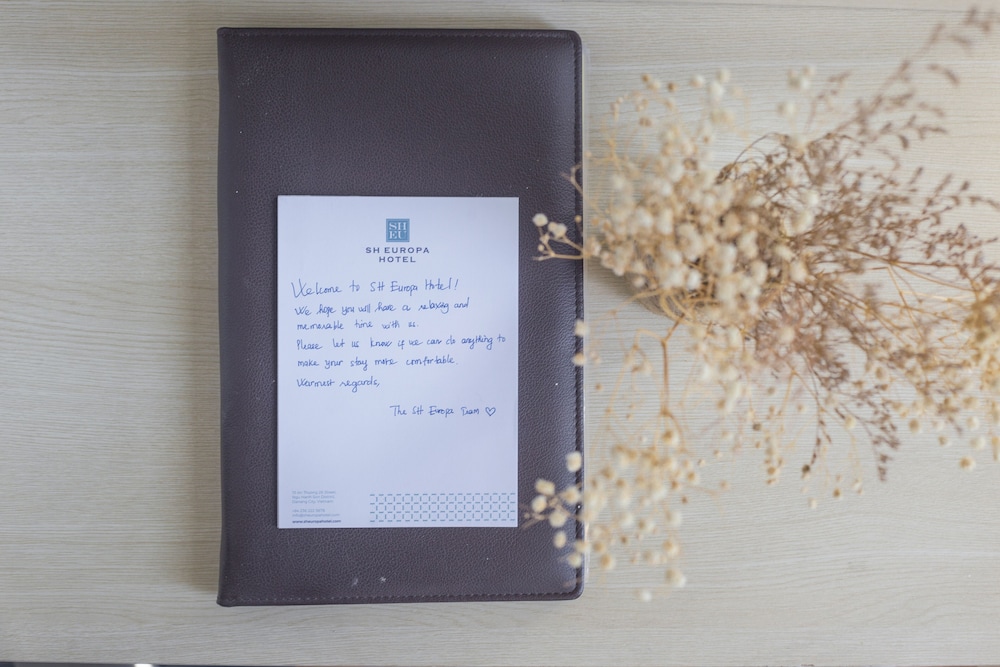 SH
EU
SH EUROPA
HOTEL
Welcome to SH Europa Hotel!
We hope you will have a relaxing and
memorable time with us.
Please let us know if we can do anything to
make your stay more comfortable.
Warmest regards,
The SH Europa Team ♡
www.sheuropahotel.com